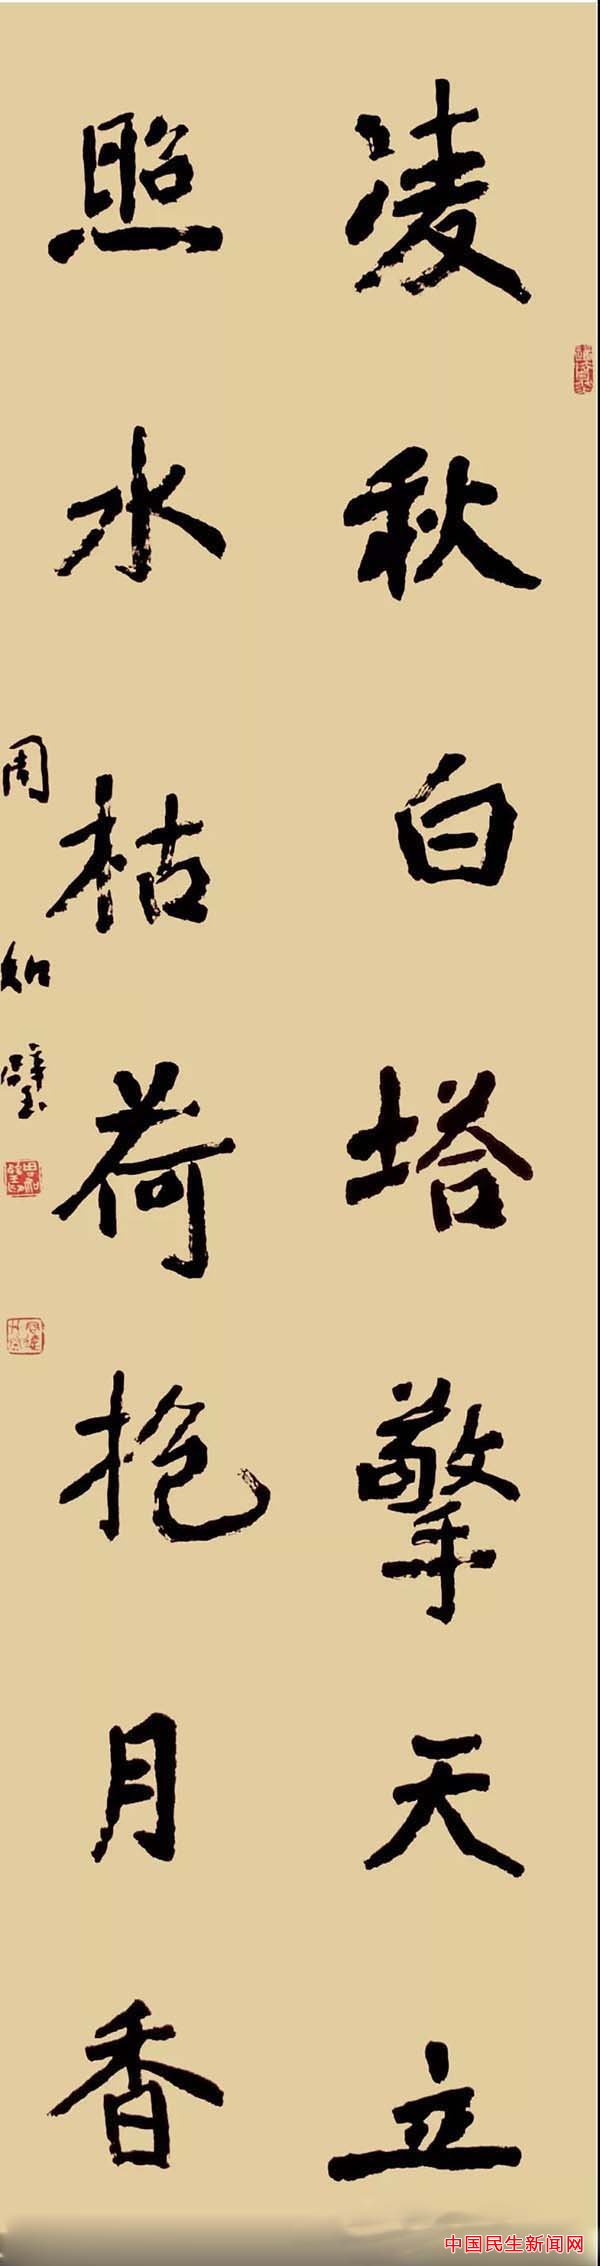 凌秋白塔擎天立
照水枯荷抱月香
周知璧
中国民生新闻网